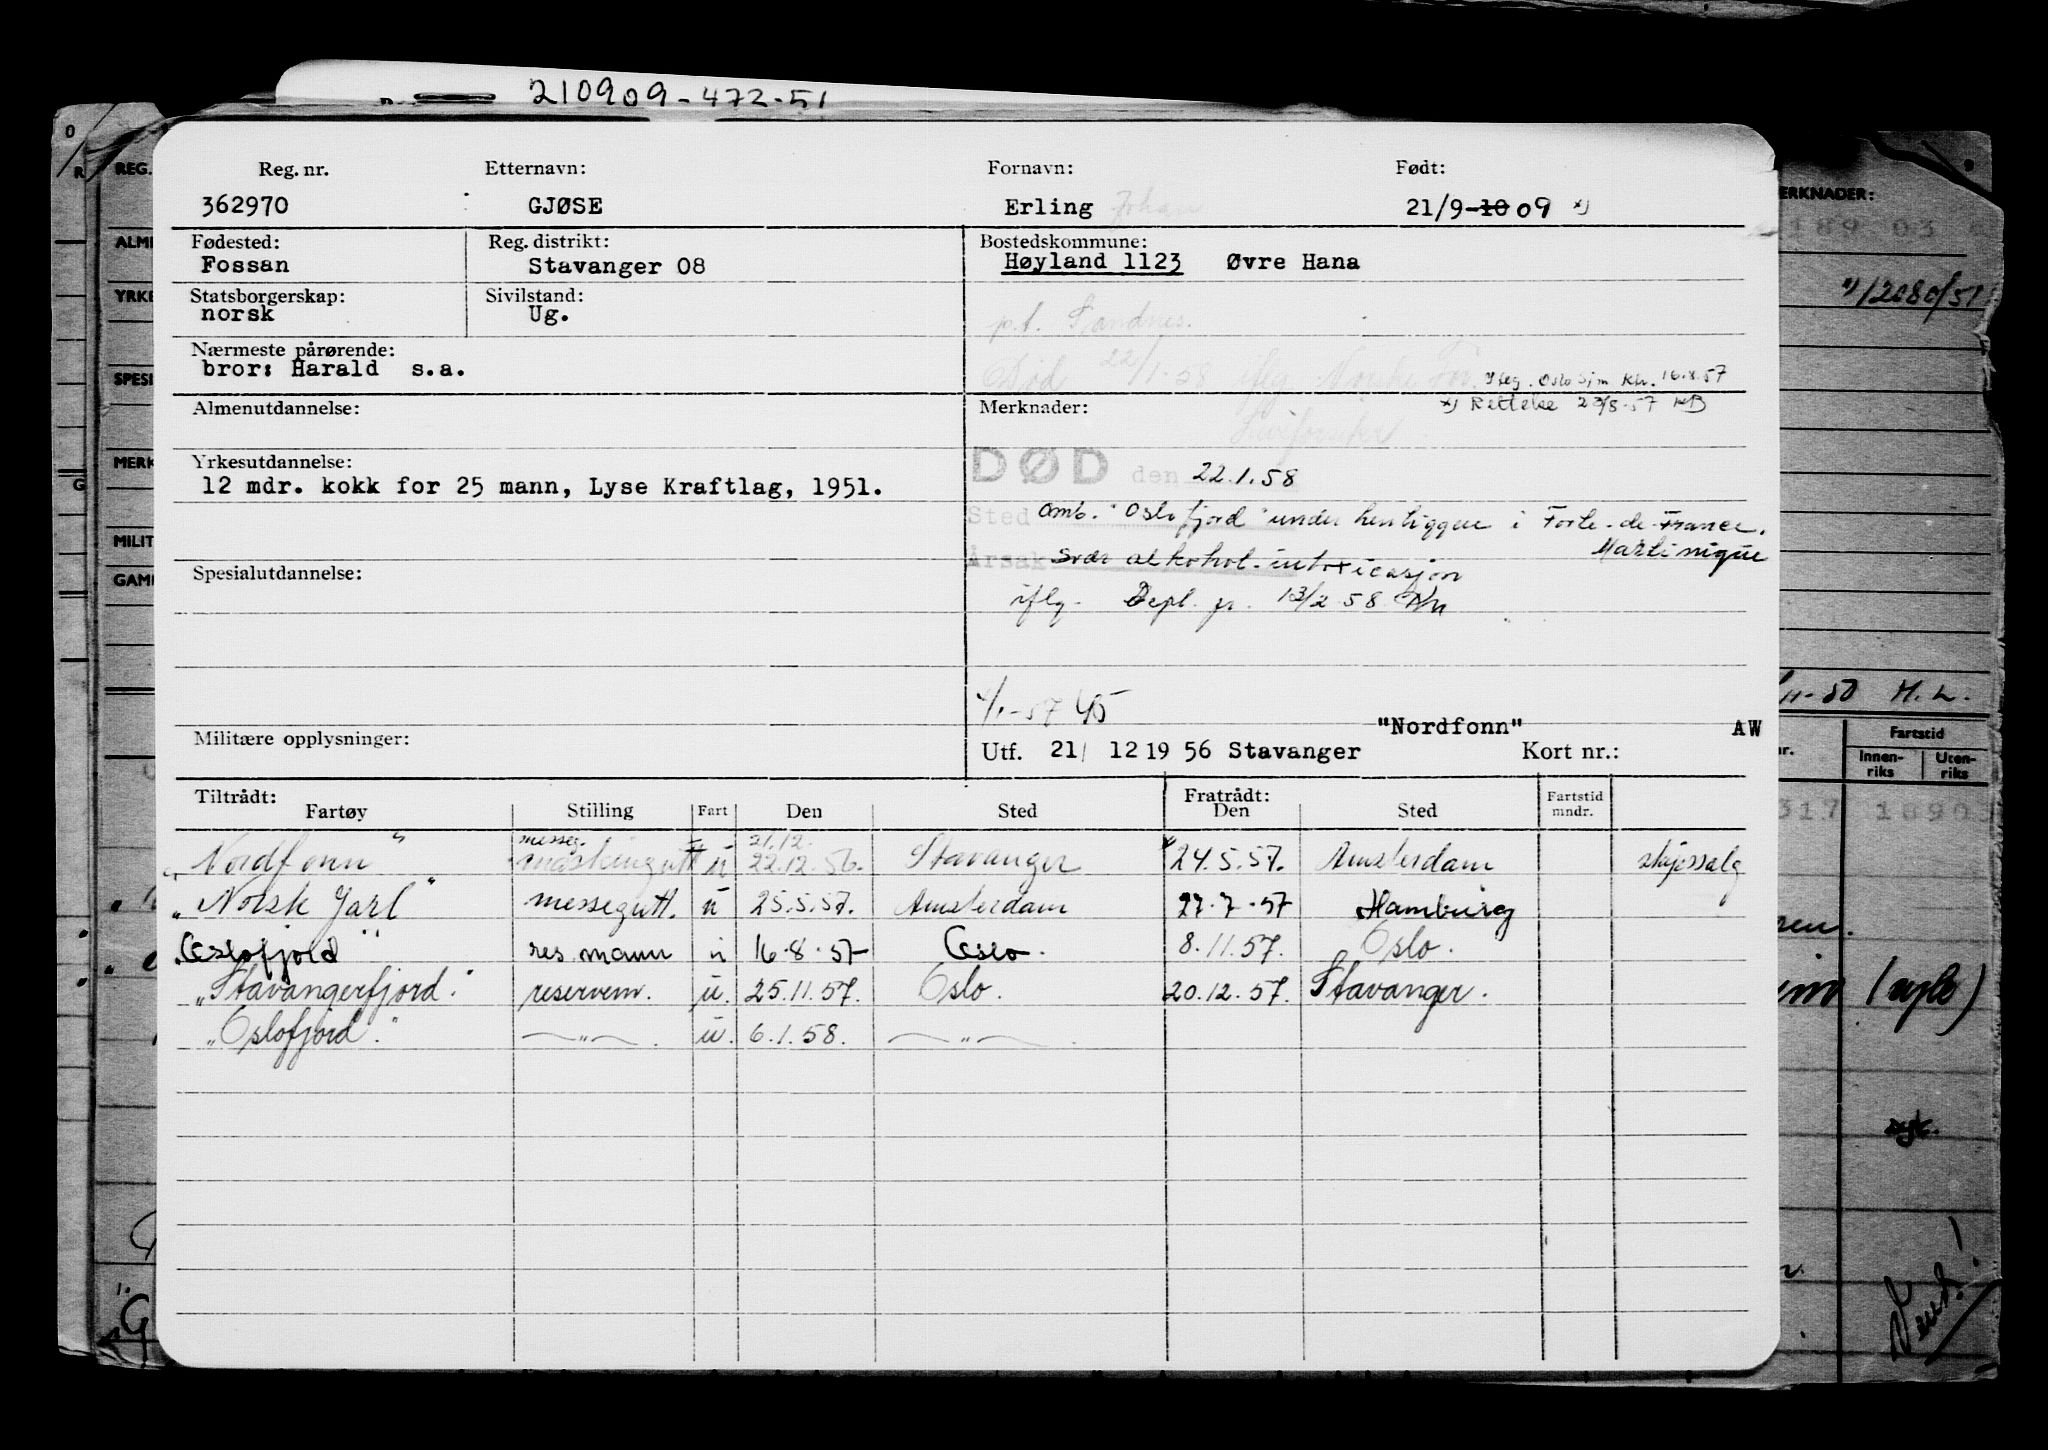 210909-472-51
Reg. nr. Etternavn: Fornavn: Født:
362970 GJØSE Erling Johan 21/9-10 09 x)
Fødested: Reg. distrikt: Bostedskommune:
Fossan Stavanger 08 Høyland 1123 Øvre Hana
Statsborgerskap: Sivilstand:
norsk Ug.
p.t. Sandnes.
Nærmeste pårørende:
bror: Harald s.a.
Død 22/1-58 iflg. Norske
Iflg. Oslo Sjm Ktr. 16.8.57
x) Rettelse 23/8-57 KB
Almenutdannelse: Merknader:
Yrkesutdannelse:
12 mdr. kokk for 25 mann, Lyse Kraftlag, 1951.
DØD den 22.1.58
Sted omb. "Oslofjord" under henliggen i Forte-de-France,
Martinique
Årsak Svær alkohol-intoxicasjon
Spesialutdannelse:
iflg. Depl. pr. 13/2 58
4/1-57 45
"Nordfonn" AW
Militære opplysninger: Utf. 21/ 12 19 56 Stavanger Kort nr.:
Tiltrådt: Fratrådt: Fartstid
Fartøy Stilling Fart Den Sted Den Sted mndr.
messeg. 21.12.
"Nordfonn" maskingutt u 22.12.56. Stavanger 24.5.57. Amsterdam skipssalg
"Norsk Jarl" messegutt. u 25.5.57. Amsterdam 27.7.57 Hamburg
"Oslofjord" res. mann u 16.8.57 Oslo. 8.11.57. Oslo.
"Stavangerfjord". reservem. u. 25.11.57. Oslo. 20.12.57. Stavanger.
"Oslofjord". —"— . u. 6.1.58. —"— .
REG.
ALME
YRKE
SPESI
MERK
MILIT
GAME
ERKNADER:
189 03
x) 12080/51
11-50 H. L.
Fartstid
nr. Innen-riks Uten-riks
317 18903